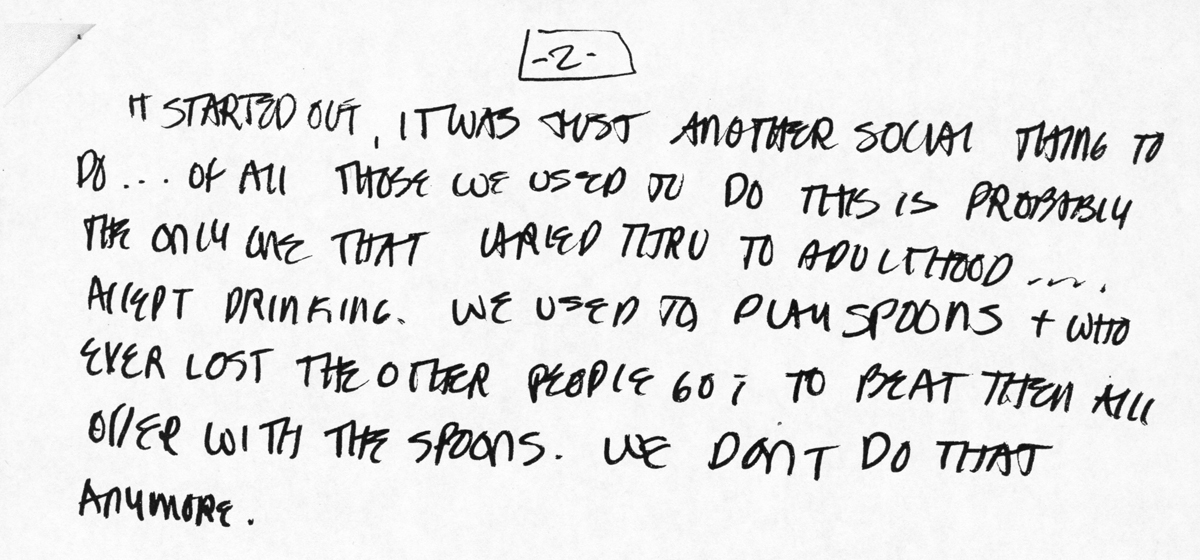 -2-
IT STARTED OUT, IT WAS JUST ANOTHER SOCIAL THING TO
DO... OF ALL THOSE WE USED TO DO THIS IS PROBABLY
THE ONLY ONE THAT CARIED THRU TO ADULTHOOD ....
ACCEPT DRINKING. WE USED TO PLAY SPOONS + WHO
EVER LOST THE OTHER PEOPLE GOT TO BEAT THEM ALL
OVER WITH THE SPOONS. WE DON'T DO THAT
ANYMORE.